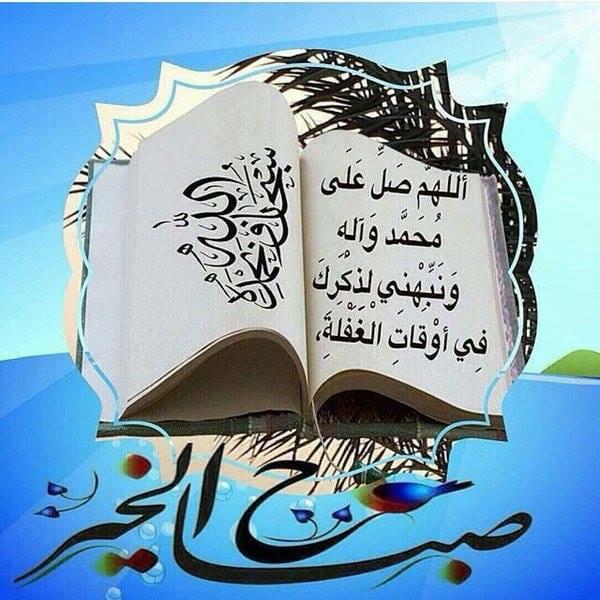 أللهمّ صَلِّ عَلَى
مُحَمَّد وَآله
وَنَبِّهْنِي لذِكْرِكَ
فِي أوْقَاتِ الْغَفْلَةِ،
سبحان الله وبحمده
صباح الخير